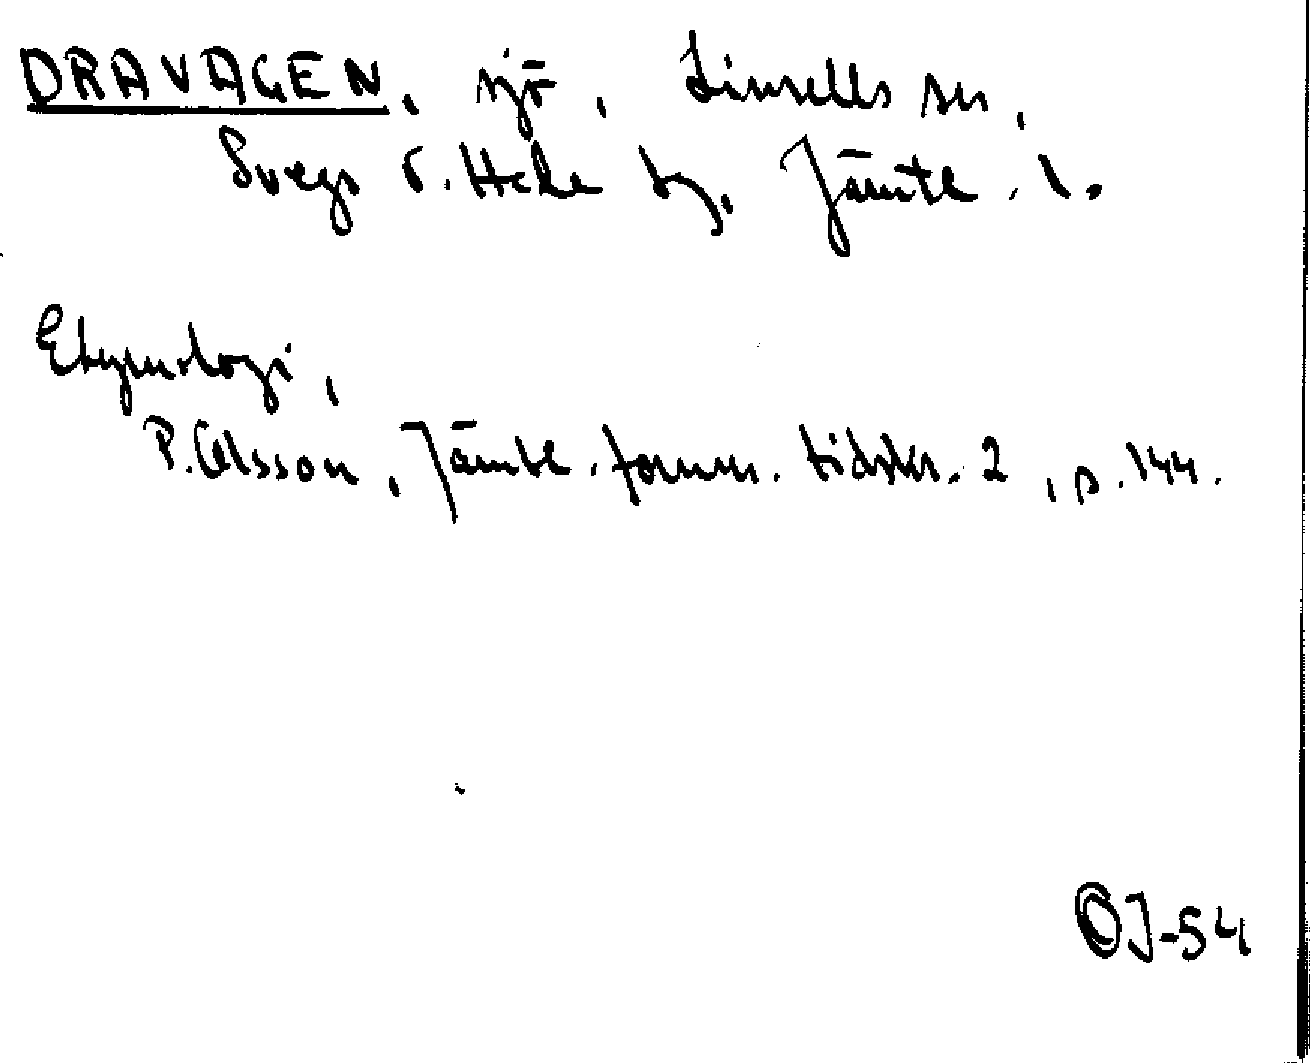 DRAVAGEN, sjö, Linsells sn,
Svegs tg. Jämtl. l.
Etymologi,
P. Olsson, Jämtl. fornm. tidskr. 2, p. 144.
OJ-54